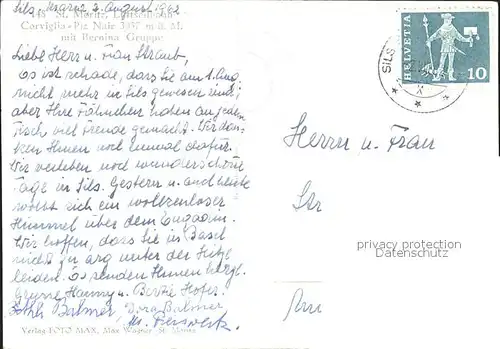 Sils, Maria 3. August 1962
St. Moritz, Luftseilbahn
Corviglia-Piz Nair 3057 m ü. M.
mit Bernina Gruppe
Liebe Herr u. Frau Straub,
Es ist schade, dass Sie am 1. Aug.
nicht mehr in Sils gewesen sind;
aber Ihre Fähnchen haben an jedem
Tisch viel Freude gemacht. Wir dan-
ken Ihnen noch einmal dafür.
Wir verleben noch wunderschöne
Tage in Sils. Gestern u. auch heute
wölbt sich ein wolkenloser
Himmel über dem Engadin.
Wir hoffen, dass Sie in Basel
nicht zu arg unter der Hitze
leiden. Es senden Ihnen herzl.
Grüsse Hanny u. Hofer.
Balmer, Dora Balmer
Verlag FOTO MAX, Max Wagner St. Moritz
HELVETIA
10
SILS
Herrn u. Frau
Str
privacy protection
Datenschutz